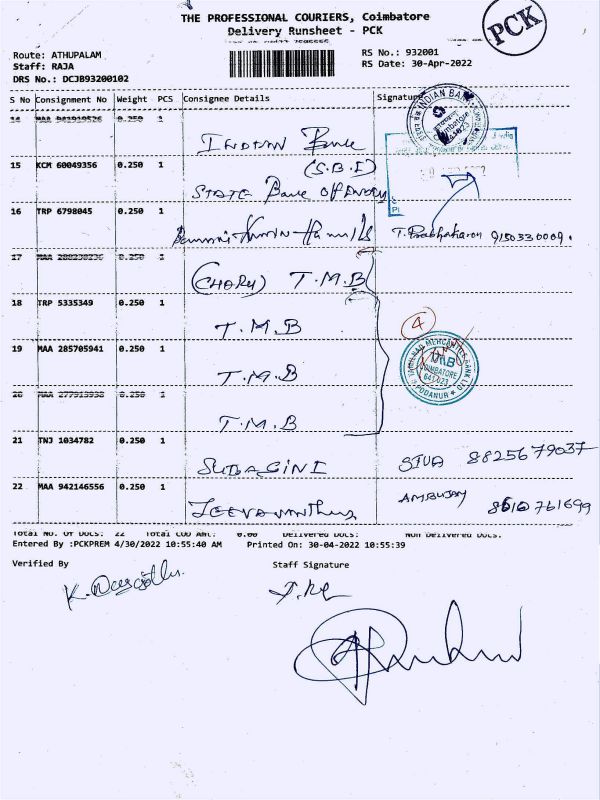 THE PROFESSIONAL COURIERS, Coimbatore
PCK
Delivery Runsheet - PCK
Route: ATHUPALAM
Staff: RAJA
DRS No.: DCJB93200102
RS No.: 932001
RS Date: 30-Apr-2022
S No Consignment No Weight PCS Consignee Details Signature
14 MAA 941919526 0.250 1
INDIAN Bank
INDIAN BANK
Coimbatore
15 KCM 60049356 0.250 1 (S.B.I)
STATE Bank Of
16 TRP 6798045 0.250 1
T. Prabhakaran 9150330009.
17 MAA 288238236 0.250 1
(CHORY) T.M.B
18 TRP 5335349 0.250 1
T.M.B
4
19 MAA 285705941 0.250 1
T.M.B
TAMILNAD MERCANTILE BANK LTD
TMB
COIMBATORE
641023
PODANUR
20 MAA 277913938 0.250 1
T.M.B
21 TNJ 1034782 0.250 1
SUBASINI SIVA 8825679037
22 MAA 942146556 0.250 1
AMBUJAM 8610761699
Total No. Of Docs: 22 Total COD Amt: 0.00 Delivered Docs: Non Delivered Docs:
Entered By :PCKPREM 4/30/2022 10:55:40 AM Printed On: 30-04-2022 10:55:39
Verified By Staff Signature